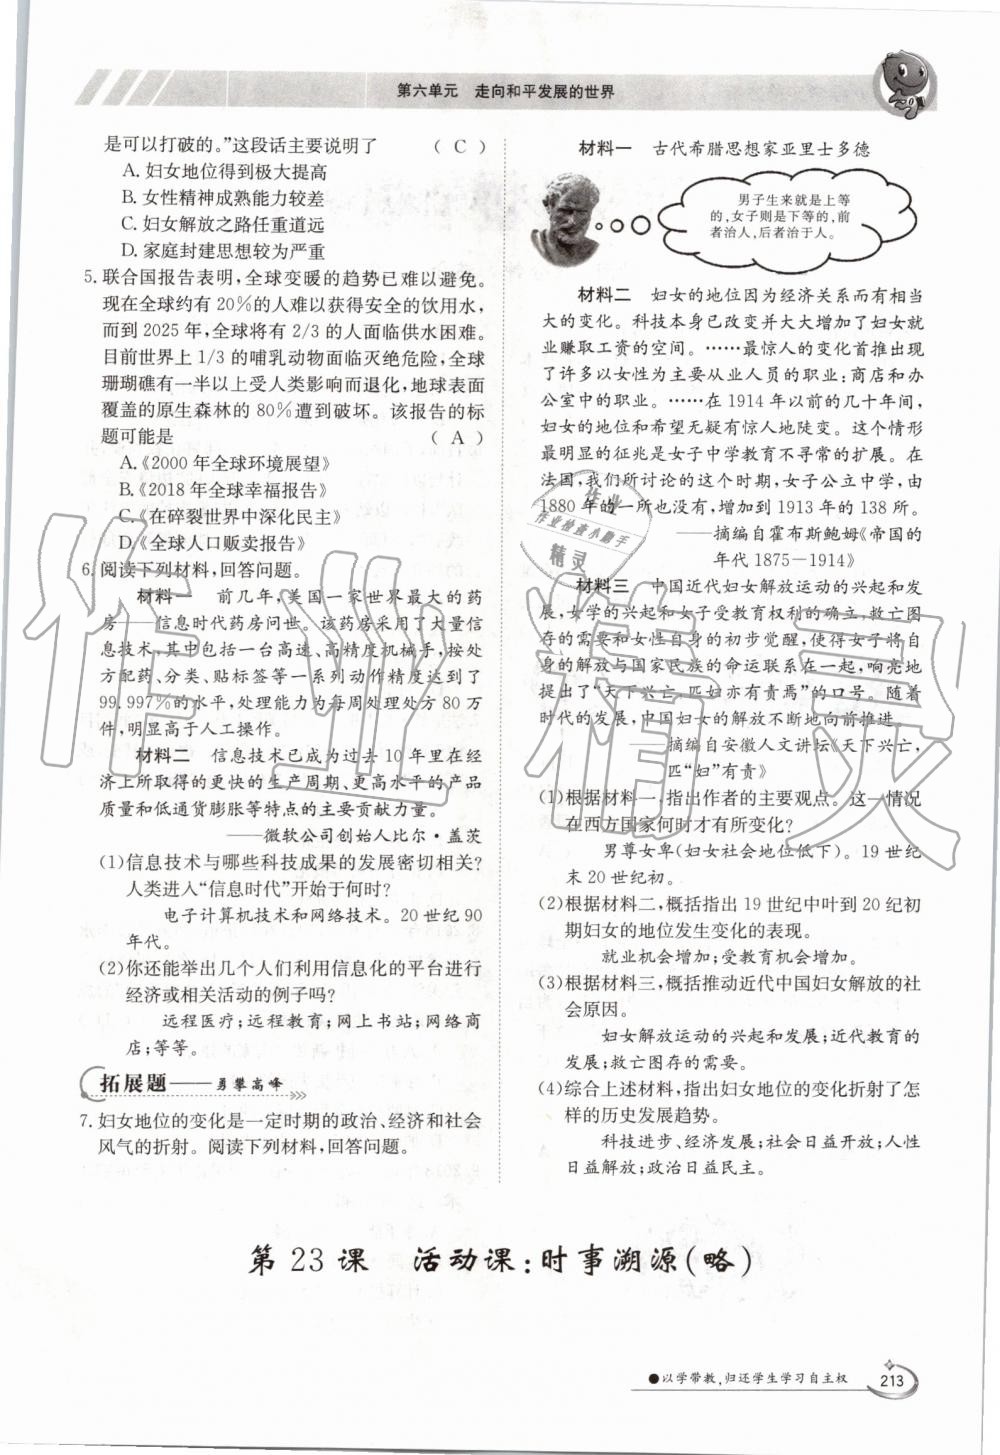 第六单元 走向和平发展的世界
是可以打破的。”这段话主要说明了 ( C )
A. 妇女地位得到极大提高
B. 女性精神成熟能力较差
C. 妇女解放之路任重道远
D. 家庭封建思想较为严重
5. 联合国报告表明,全球变暖的趋势已难以避免。
现在全球约有 20%的人难以获得安全的饮用水,
而到 2025 年,全球将有 2/3 的人面临供水困难。
目前世界上 1/3 的哺乳动物面临灭绝危险,全球
珊瑚礁有一半以上受人类影响而退化,地球表面
覆盖的原生森林的 80%遭到破坏。该报告的标
题可能是 ( A )
A.《2000 年全球环境展望》
B.《2018 年全球幸福报告》
C.《在碎裂世界中深化民主》
D.《全球人口贩卖报告》
6. 阅读下列材料,回答问题。
材料一 前几年,美国一家世界最大的药
房——信息时代药房问世。该药房采用了大量信
息技术,其中包括一台高速、高精度机械手,按处
方配药、分类、贴标签等一系列动作精度达到了
99.997%的水平,处理能力为每周处理处方 80 万
件,明显高于人工操作。
材料二 信息技术已成为过去 10 年里在经
济上所取得的更快的生产周期、更高水平的产品
质量和低通货膨胀等特点的主要贡献力量。
——微软公司创始人比尔·盖茨
(1)信息技术与哪些科技成果的发展密切相关?
人类进入“信息时代”开始于何时?
电子计算机技术和网络技术。20 世纪 90
年代。
(2)你还能举出几个人们利用信息化的平台进行
经济或相关活动的例子吗?
远程医疗;远程教育;网上书站;网络商
店;等等。
拓展题——勇攀高峰
7. 妇女地位的变化是一定时期的政治、经济和社会
风气的折射。阅读下列材料,回答问题。
材料一 古代希腊思想家亚里士多德
男子生来就是上等
的,女子则是下等的,前
者治人,后者治于人。
材料二 妇女的地位因为经济关系而有相当
大的变化。科技本身已改变并大大增加了妇女就
业赚取工资的空间。……最惊人的变化首推出现
了许多以女性为主要从业人员的职业:商店和办
公室中的职业。……在 1914 年以前的几十年间,
妇女的地位和希望无疑有惊人地陡变。这个情形
最明显的征兆是女子中学教育不寻常的扩展。在
法国,我们所讨论的这个时期,女子公立中学,由
1880 年的一所也没有,增加到 1913 年的 138 所。
——摘编自霍布斯鲍姆《帝国的
年代 1875—1914》
材料三 中国近代妇女解放运动的兴起和发
展,女学的兴起和女子受教育权利的确立,救亡图
存的需要和女性自身的初步觉醒,使得女子将自
身的解放与国家民族的命运联系在一起,响亮地
提出了“天下兴亡,匹妇亦有责焉”的口号。随着
时代的发展,中国妇女的解放不断地向前推进……
——摘编自安徽人文讲坛《天下兴亡,
匹“妇”有责》
(1)根据材料一,指出作者的主要观点。这一情况
在西方国家何时才有所变化?
男尊女卑(妇女社会地位低下)。19 世纪
末 20 世纪初。
(2)根据材料二,概括指出 19 世纪中叶到 20 纪初
期妇女的地位发生变化的表现。
就业机会增加;受教育机会增加。
(3)根据材料三,概括推动近代中国妇女解放的社
会原因。
妇女解放运动的兴起和发展;近代教育的
发展;救亡图存的需要。
(4)综合上述材料,指出妇女地位的变化折射了怎
样的历史发展趋势。
科技进步、经济发展;社会日益开放;人性
日益解放;政治日益民主。
第 23 课 活动课:时事溯源(略)
●以学带教,归还学生学习自主权
213
作业精灵
作业
作业检查小助手
精灵